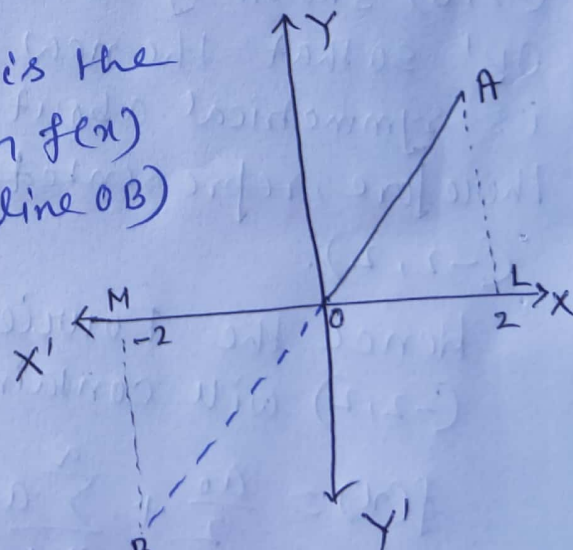 is the
n f(x)
line OB)
Y
A
M
L
X'
-2
O
2
X
B
Y'